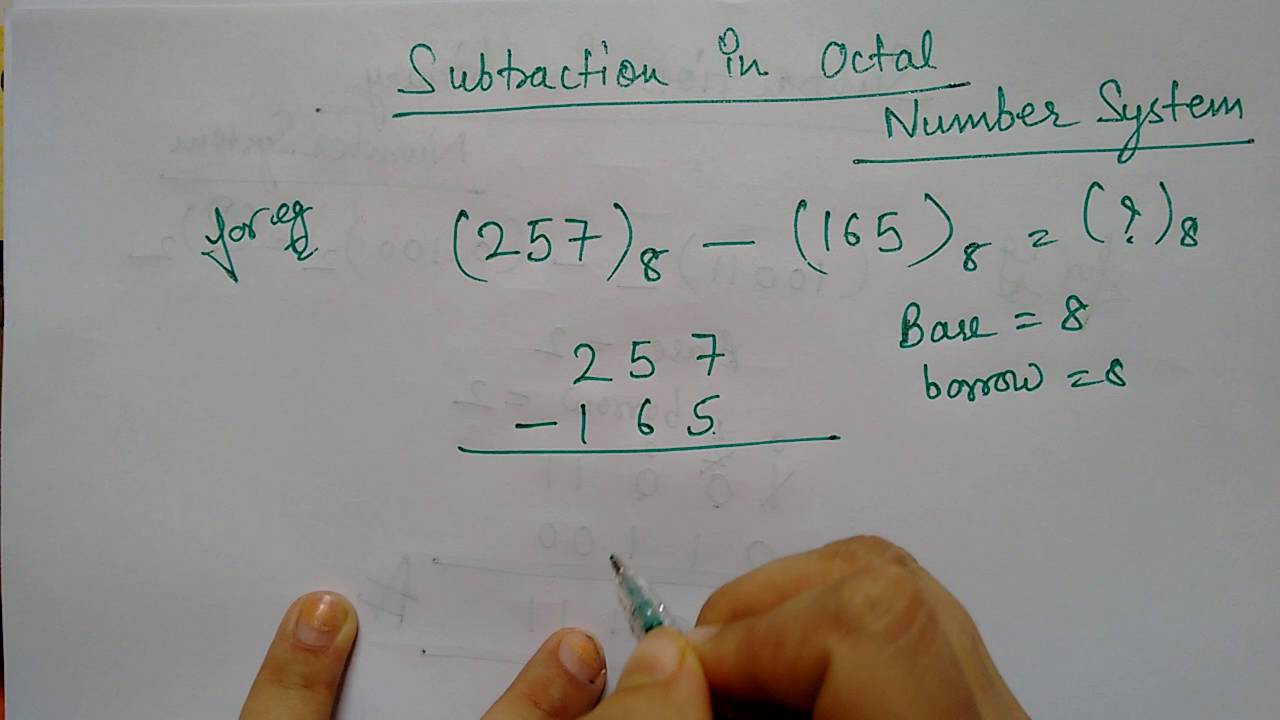 Subtraction in Octal
Number System
for eg (257)₈ — (165)₈ = (?)₈
Base = 8
borrow = 8
2 5 7
— 1 6 5